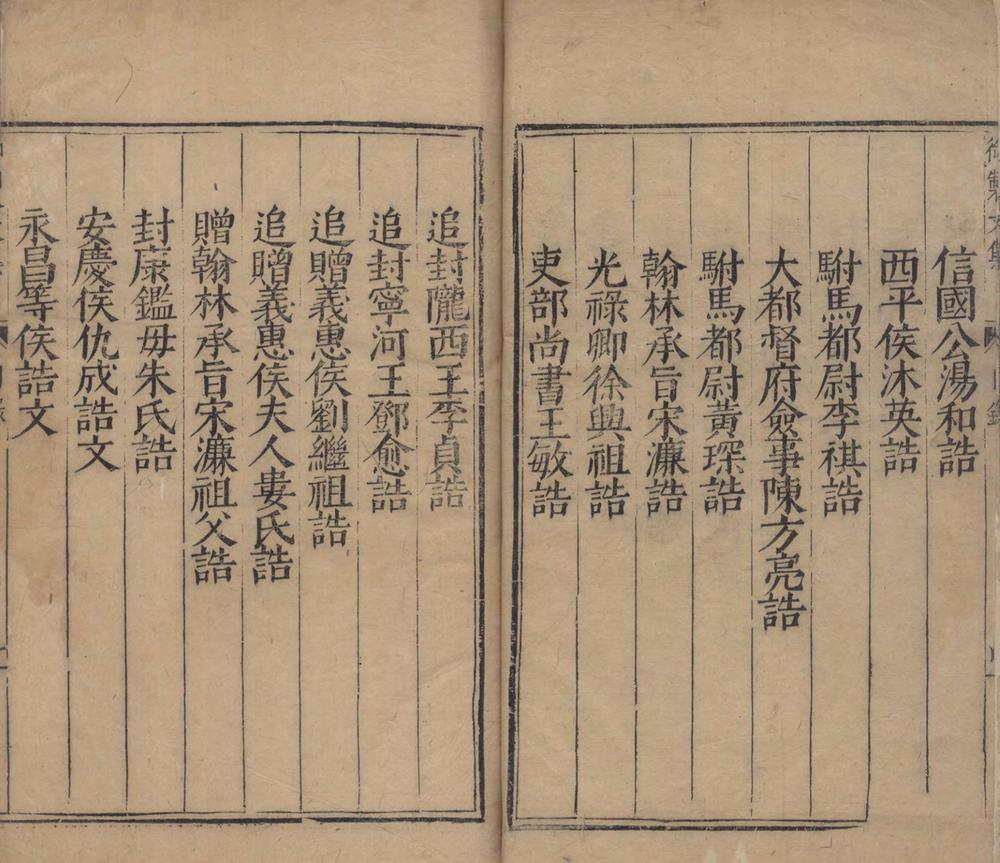 御製文集
信國公湯和誥
西平侯沐英誥
駙馬都尉李祺誥
大都督府僉事陳方亮誥
駙馬都尉黃琛誥
翰林承旨宋濂誥
光祿卿徐興祖誥
吏部尚書王敏誥
追封隴西王李貞誥
追封寧河王鄧愈誥
追贈義惠侯劉繼祖誥
追贈義惠侯夫人婁氏誥
贈翰林承旨宋濂祖父誥
封康鑑母朱氏誥
安慶侯仇成誥文
永昌等侯誥文